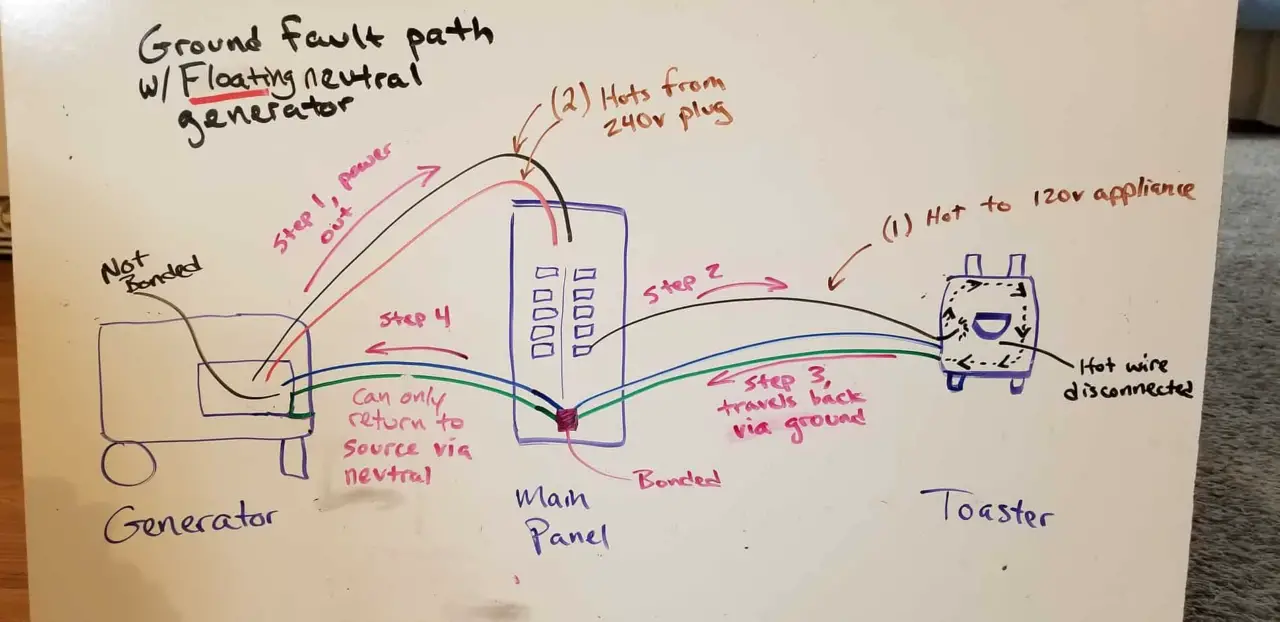 Ground fault path
w/ Floating neutral
generator
(2) Hots from
240v plug
Step 1, power
out
(1) Hot to 120v appliance
Not
Bonded
Step 2
Step 4
Can only
return to
source via
neutral
Step 3,
travels back
via ground
Hot wire
disconnected
Bonded
Generator
Main
Panel
Toaster